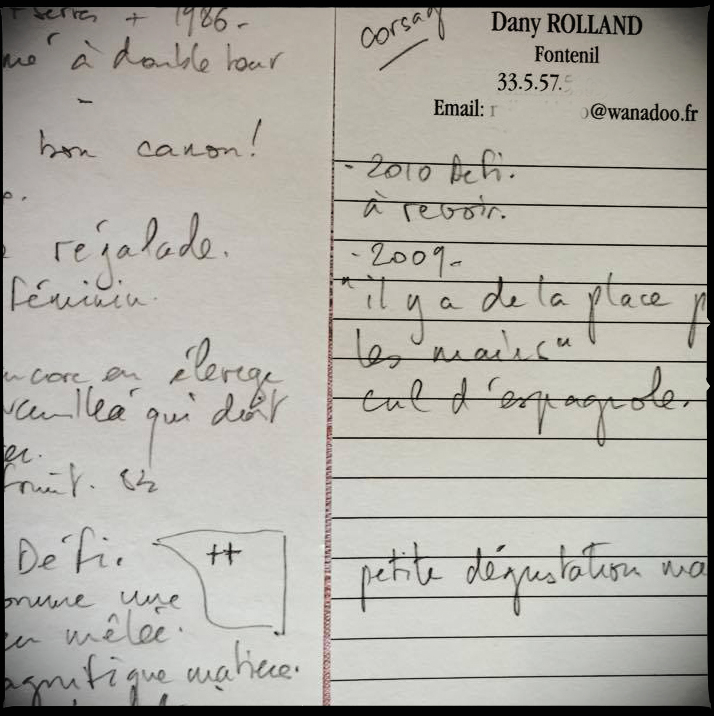 + 1986-
à double tour
-
bon canon!
régalade.
féminin.
en élevage
qui doit
Défi. ++
une
en mêlée.
magnifique matière.
corsaq
Dany ROLLAND
Fontenil
33.5.57.
Email: r @wanadoo.fr
- 2010 Defi.
à revoir.
- 2009-
"il y a de la place p
les mains"
cul d'espagnole.
petite dégustation ma